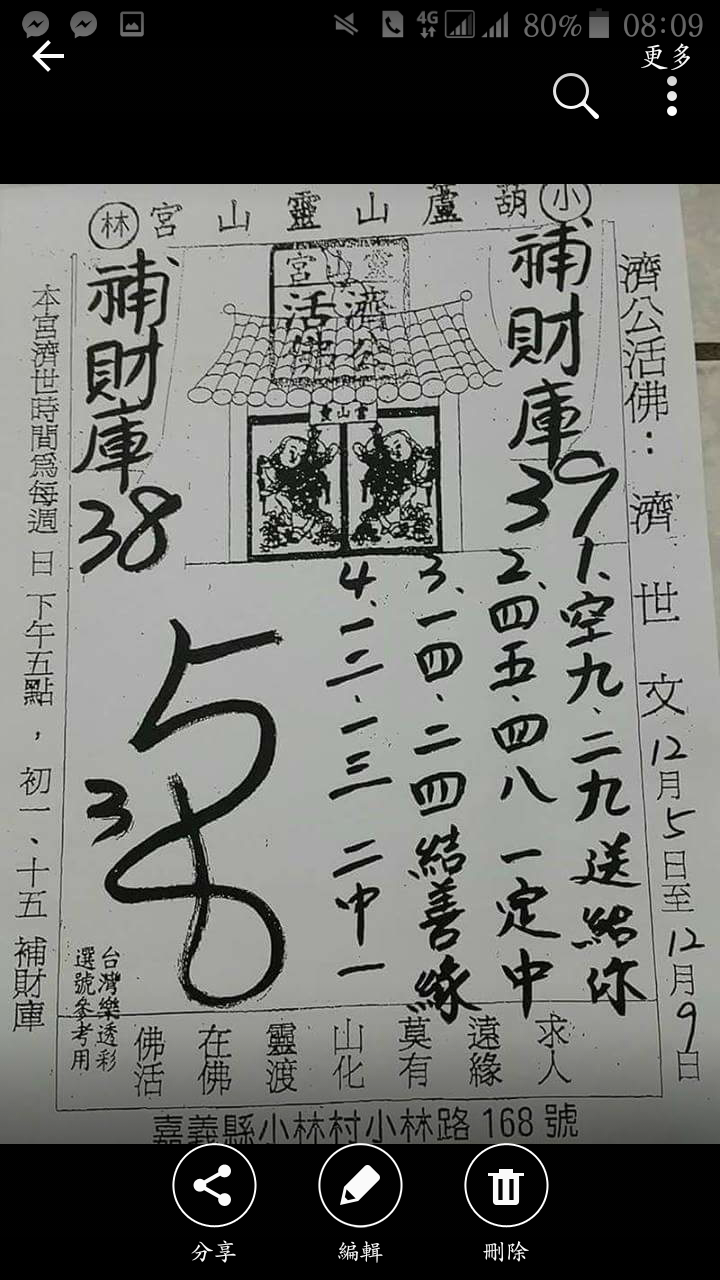 4G 80% 08:09
更多
小
葫蘆山靈山宮
林
濟公活佛：濟世文 12月5日至12月9日
補財庫
39
靈山宮
濟公
活佛
靈山宮
補財庫
38
1、空九、二九送給你
2、四五、四八一定中
3、一四、二四結善緣
4、一二、一三 二中一
3
本宮濟世時間為每週日下午五點，初一、十五 補財庫
台灣樂透彩
選號參考用
求人
遠緣
莫有
山化
靈渡
在佛
佛活
嘉義縣小林村小林路 168 號
分享
編輯
刪除